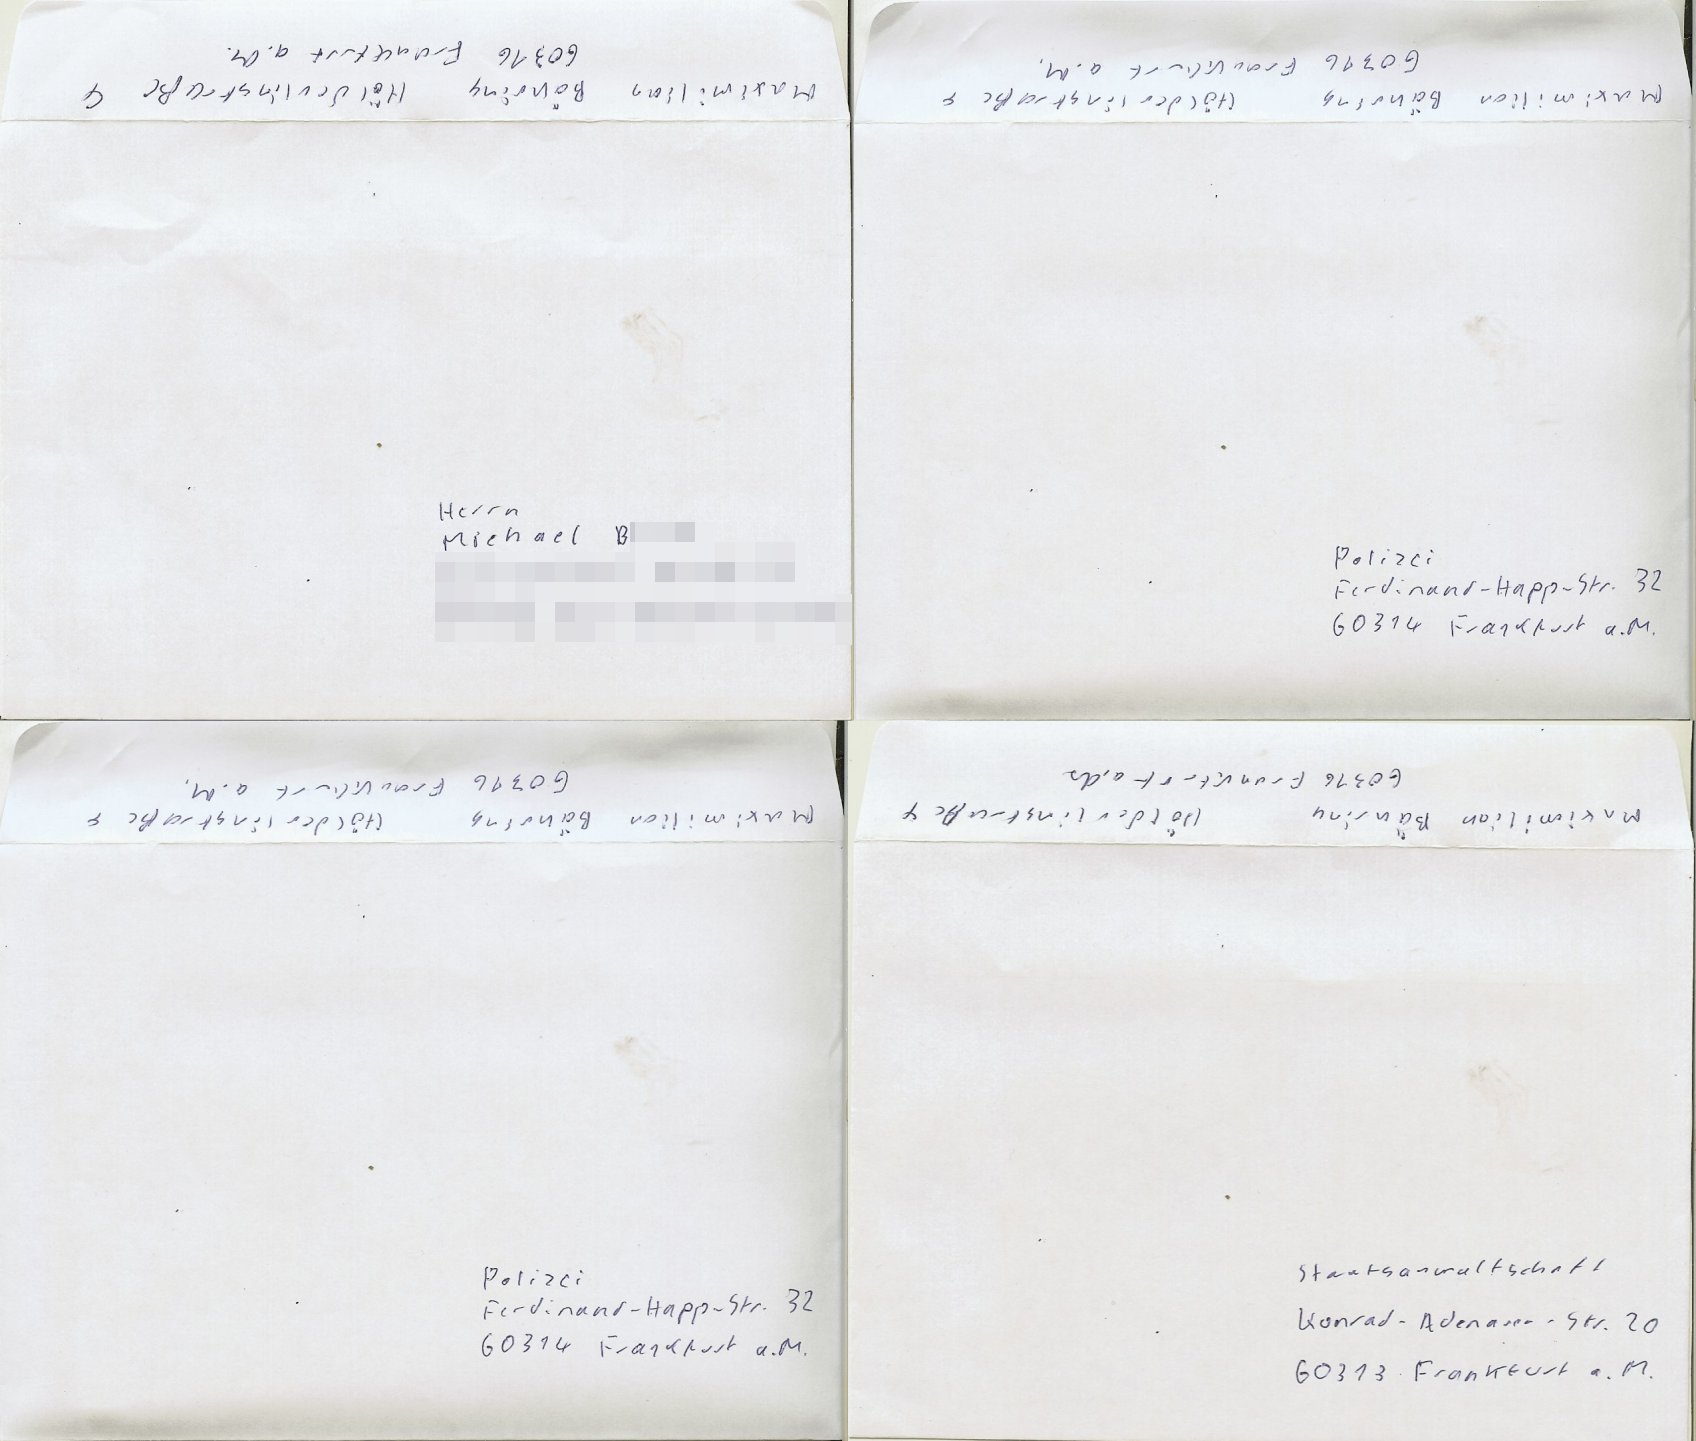 Maximilian Bähring Hölderlinstraße 4
60316 Frankfurt a.M.
Herrn
Michael B
Maximilian Bähring Hölderlinstraße 4
60316 Frankfurt a.M.
Polizei
Ferdinand-Happ-Str. 32
60314 Frankfurt a.M.
Maximilian Bähring Hölderlinstraße 4
60316 Frankfurt a.M.
Polizei
Ferdinand-Happ-Str. 32
60314 Frankfurt a.M.
Maximilian Bähring Hölderlinstraße 4
60316 Frankfurt a.M.
Staatsanwaltschaft
Konrad-Adenauer-Str. 20
60313 Frankfurt a.M.